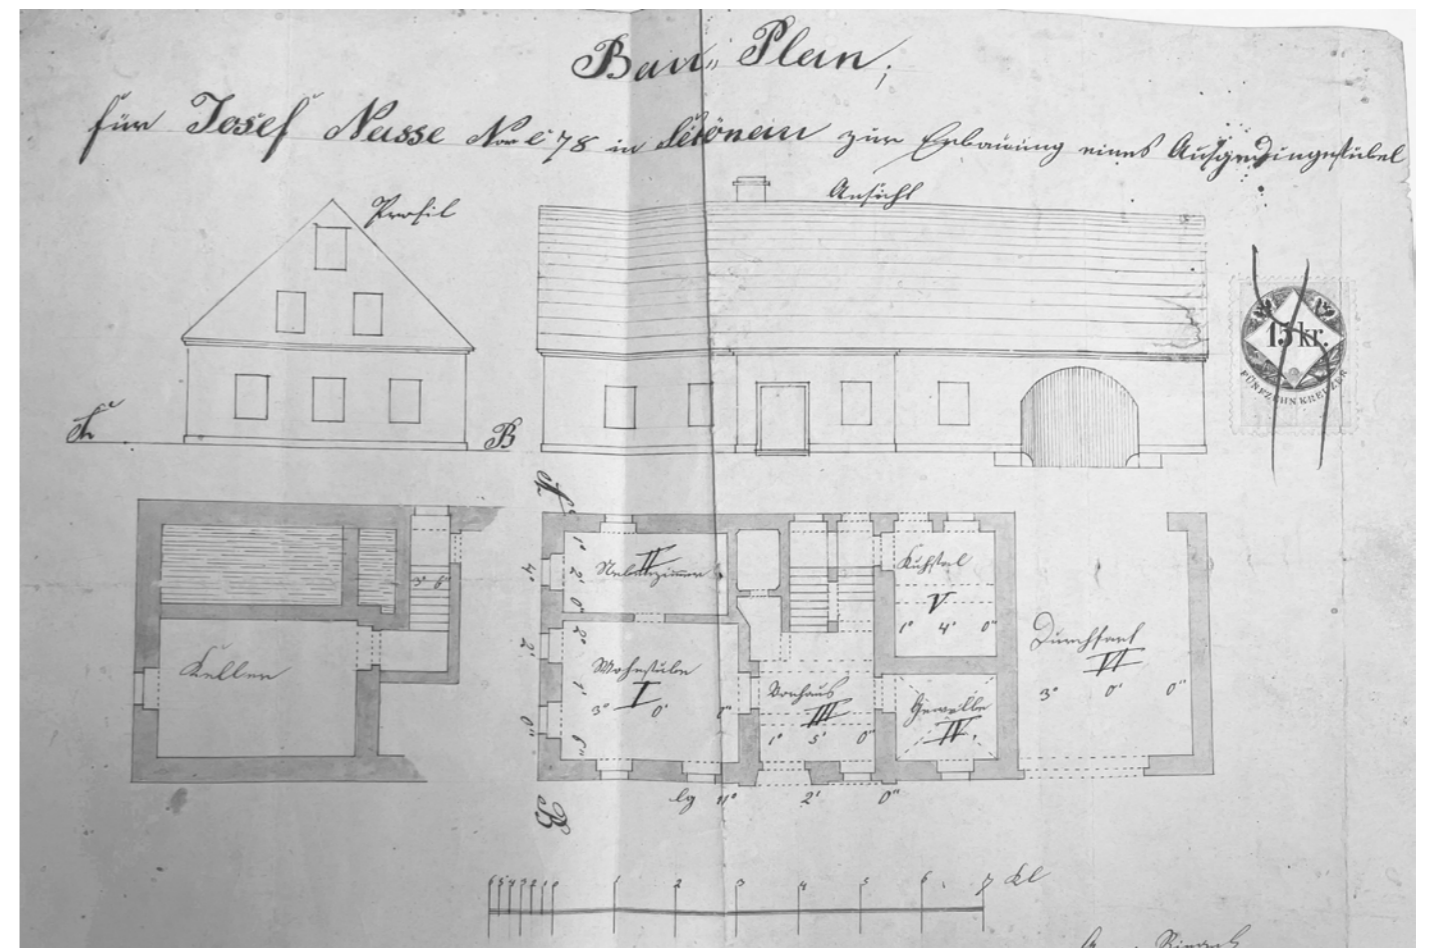 Bau Plan,
für Josef Nasse Nro C 78 in Schönau zur Erbauung eines Ausgedingestübel
Profil
Ansicht
15 kr.
FÜNFZEHN KREUZER
A
B
A
B
Keller
3' 6"
II
Nebenzimmer
1° 2' 0"
4° 2' 0"
Wohnstube
I
2° 1' 6"
3° 0' 2"
Vorhaus
III
1° 5' 0"
Kuhstal
V
1° 4' 0"
Gewölbe
IV.
Durchfart
VI
3° 0' 0"
lg 11° 2' 0"
6 5 4 3 2 1 0 1 2 3 4 5 6 7 Kl